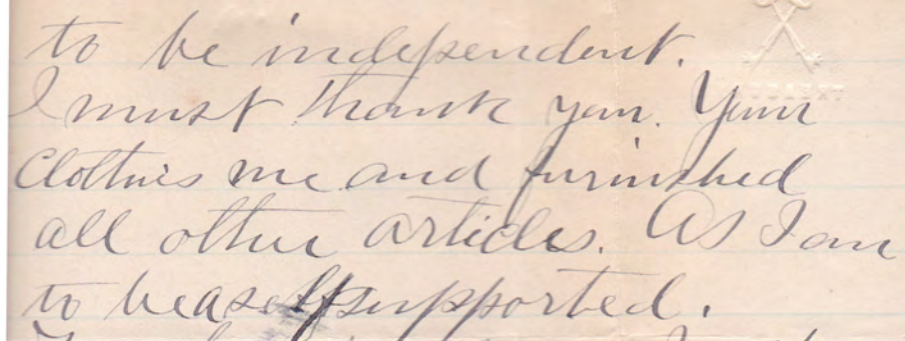 to be independent.
I must thank you. Your
Clothes me and furnished
all other articles. As I am
to be a self supported.